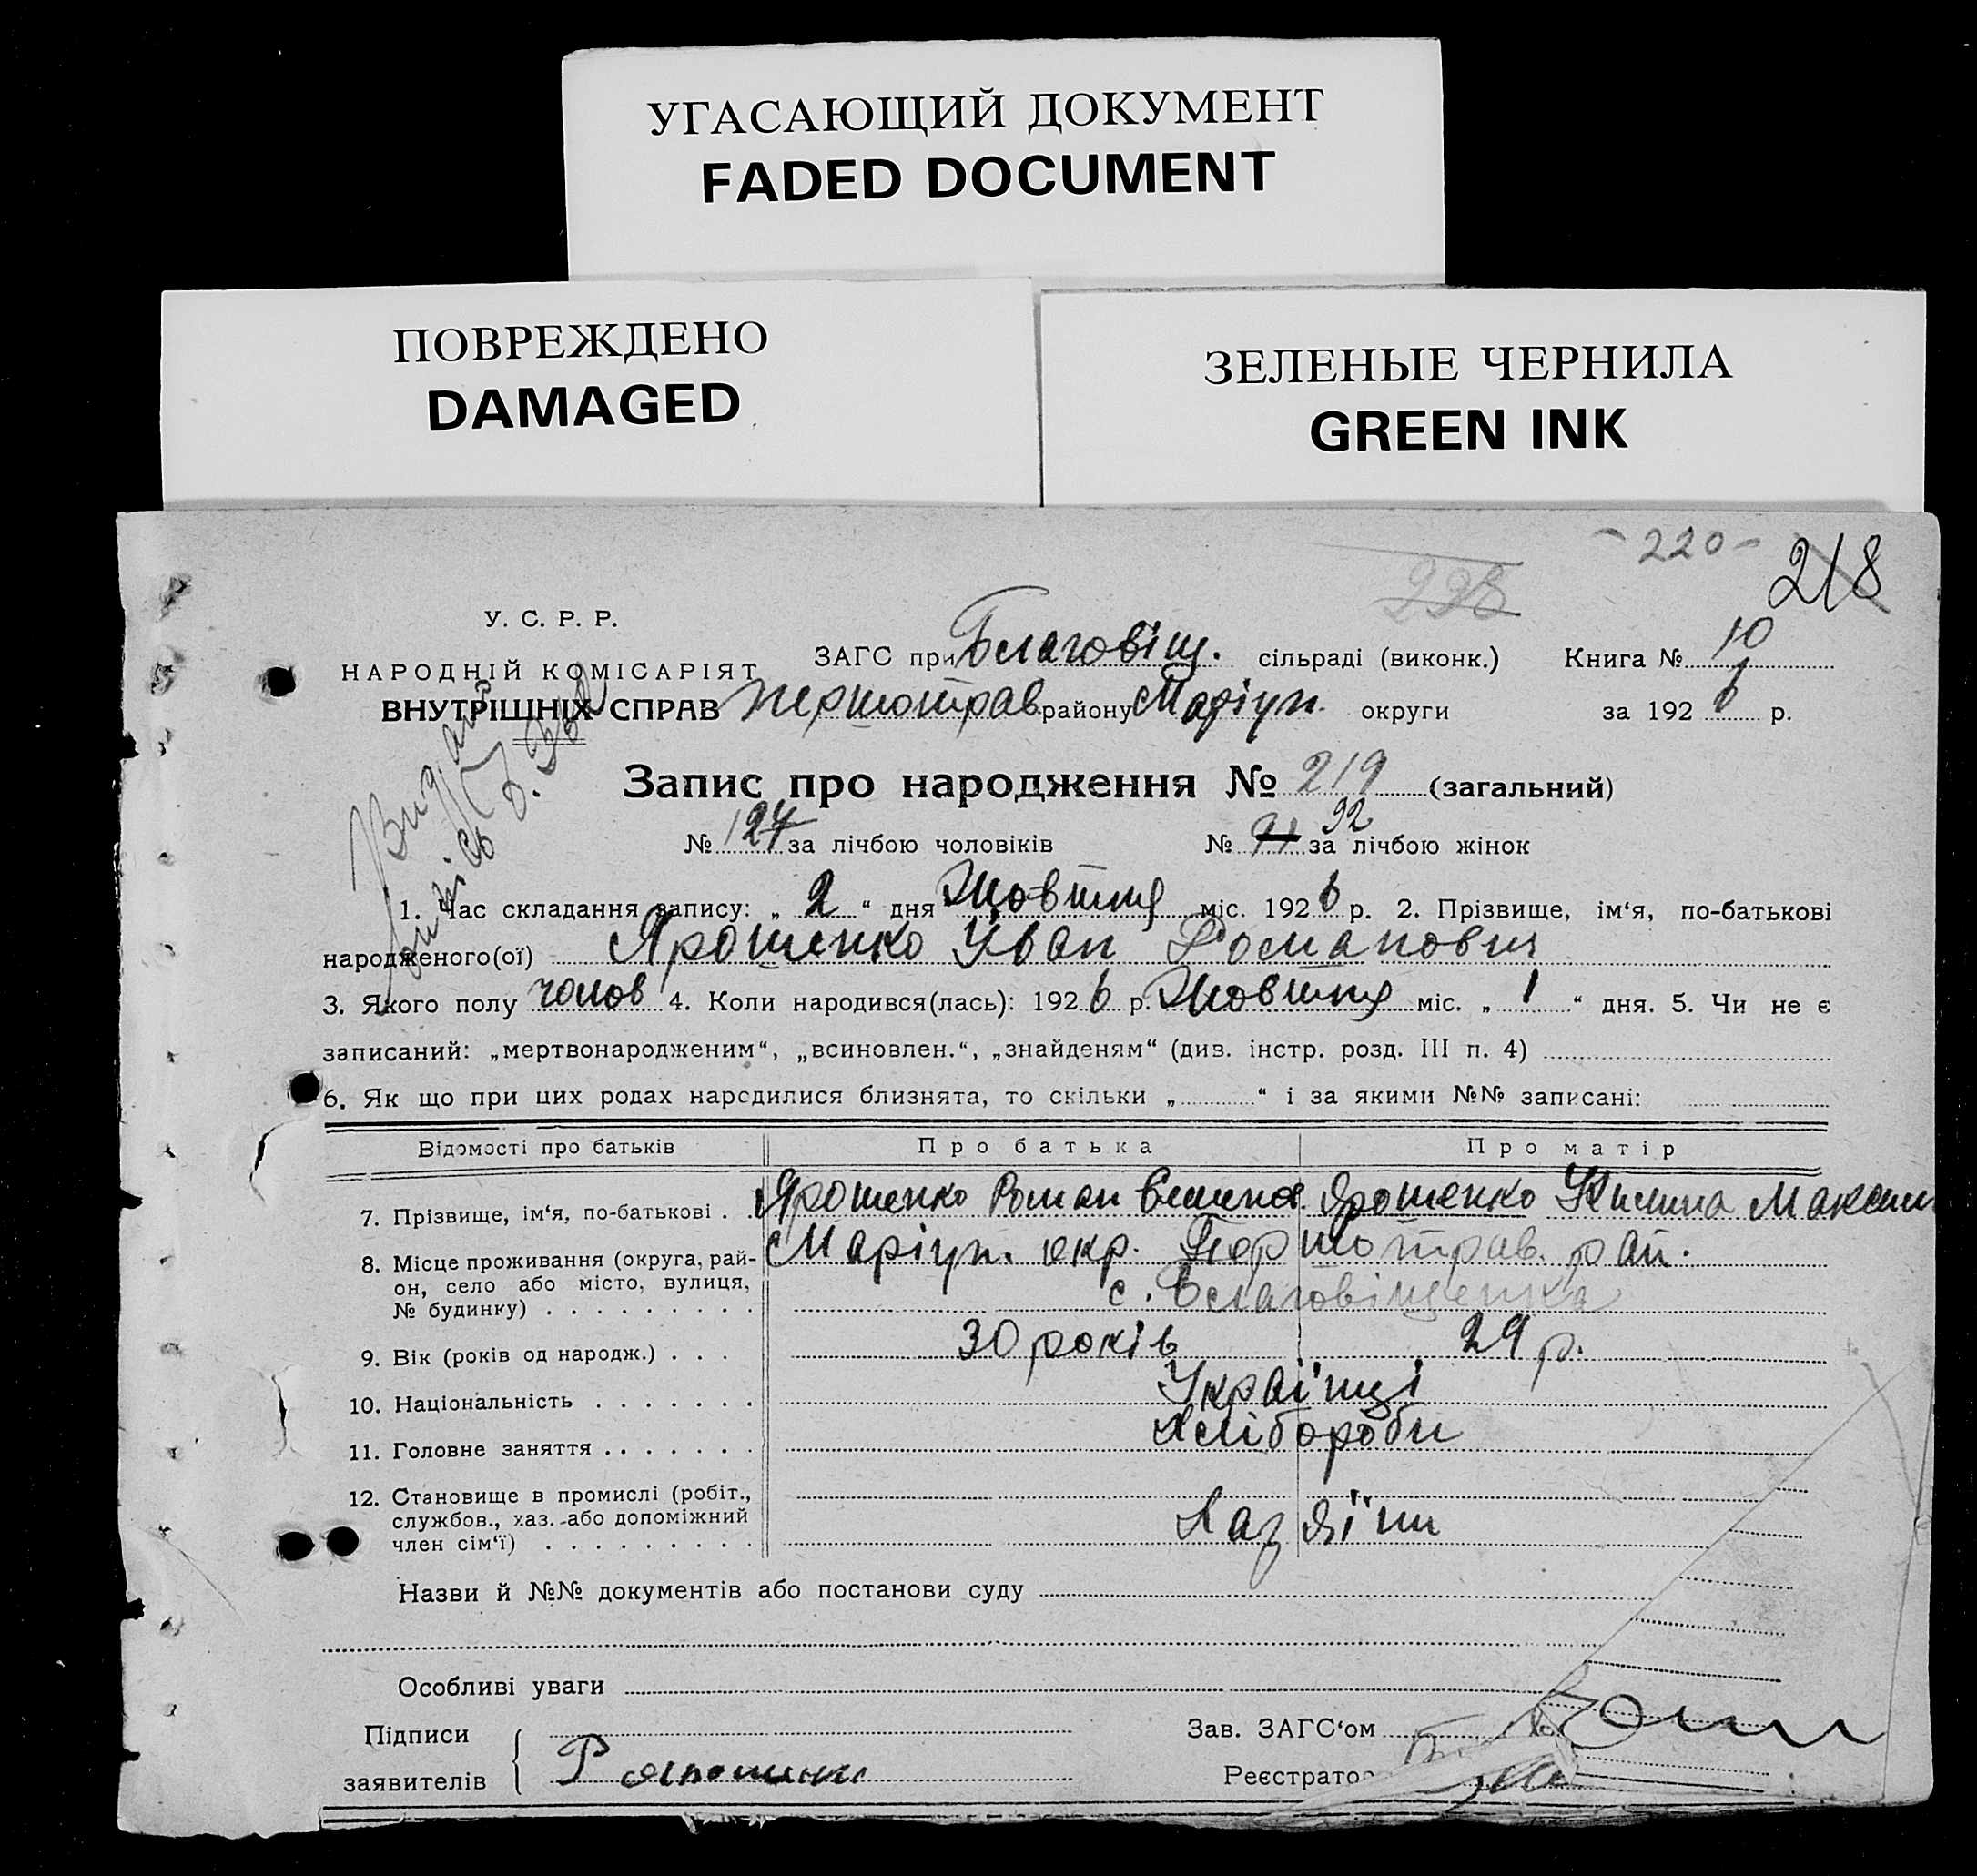 УГАСАЮЩИЙ ДОКУМЕНТ
FADED DOCUMENT
ПОВРЕЖДЕНО
DAMAGED
ЗЕЛЕНЫЕ ЧЕРНИЛА
GREEN INK
- 220 -
218
У. С. Р. Р.
НАРОДНІЙ КОМІСАРІЯТ
ВНУТРІШНІХ СПРАВ
ЗАГС при Благовіщ. сільраді (виконк.) Книга № 10
Першотрав. району Маріуп. округи за 1926 р.
Запис про народження № 219 (загальний)
№ 127 за лічбою чоловіків № 91 92 за лічбою жінок
1. Час складання запису: „ 2 “ дня Жовтня міс. 1926 р. 2. Прізвище, ім‘я, по-батькові
народженого(ої) Ярошенко Іван Романович
3. Якого полу чолов 4. Коли народився(лась): 1926 р. Жовтня міс. „ 1 “ дня. 5. Чи не є
записаний: „мертвонародженим“, „всиновлен.“, „знайденям“ (див. інстр. розд. III п. 4)
6. Як що при цих родах народилися близнята, то скільки „ “ і за якими №№ записані:
Відомості про батьків Про батька Про матір
7. Прізвище, ім‘я, по-батькові . . Ярошенко Роман Ярошенко Максим
8. Місце проживання (округа, рай- Маріуп. окр. Першотрав. рай.
он, село або місто, вулиця,
№ будинку) . . . . . . . . . с. Благовіщенка
9. Вік (років од народж.) . . . 30 років 29 р.
10. Національність . . . . . . . Українці
11. Головне заняття . . . . . . . Хлібороби
12. Становище в промислі (робіт.,
службов., хаз. або допоміжний Хазяїни
член сім‘ї) . . . . . . . . .
Назви й №№ документів або постанови суду
Особливі уваги
Підписи
заявителів
Зав. ЗАГС‘ом
Реєстратор